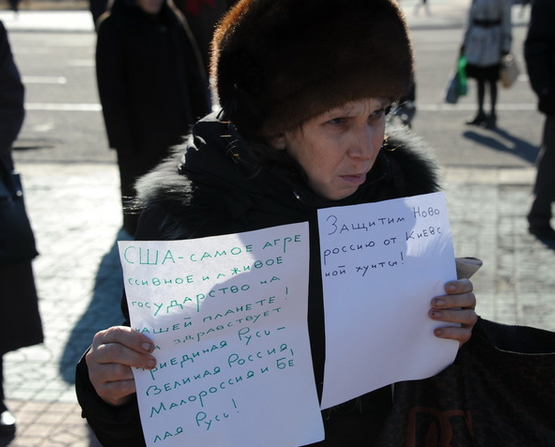 США-самое агре
ссивное и лживое
государство на
нашей планете!
здравствует
триединая Русь-
Великая Россия,
Малороссия и Бе
лая Русь!
Защитим Ново
россию от Киевс
ной хунты!